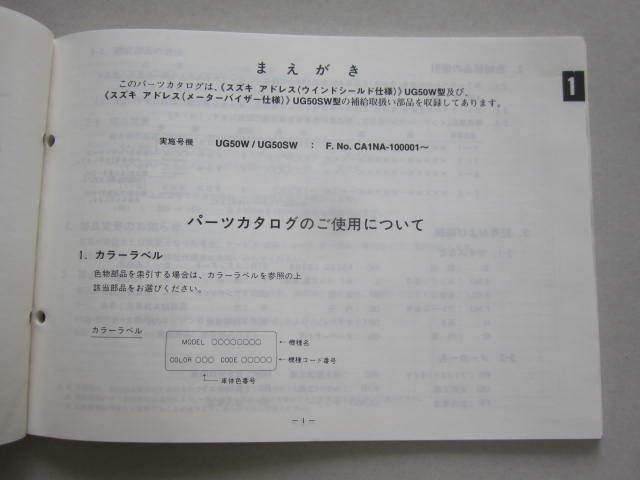 まえがき
1
このパーツカタログは、《スズキ アドレス(ウインドシールド仕様)》UG50W型及び、
《スズキ アドレス(メーターバイザー仕様)》UG50SW型の補給取扱い部品を収録してあります。
実施号機 UG50W / UG50SW : F. No. CA1NA-100001〜
パーツカタログのご使用について
1. カラーラベル
色物部品を索引する場合は、カラーラベルを参照の上
該当部品をお選びください。
カラーラベル
MODEL ○○○○○○○○ ← 機種名
COLOR ○○○ CODE ○○○○○ ← 機種コード番号
車体色番号
— 1 —